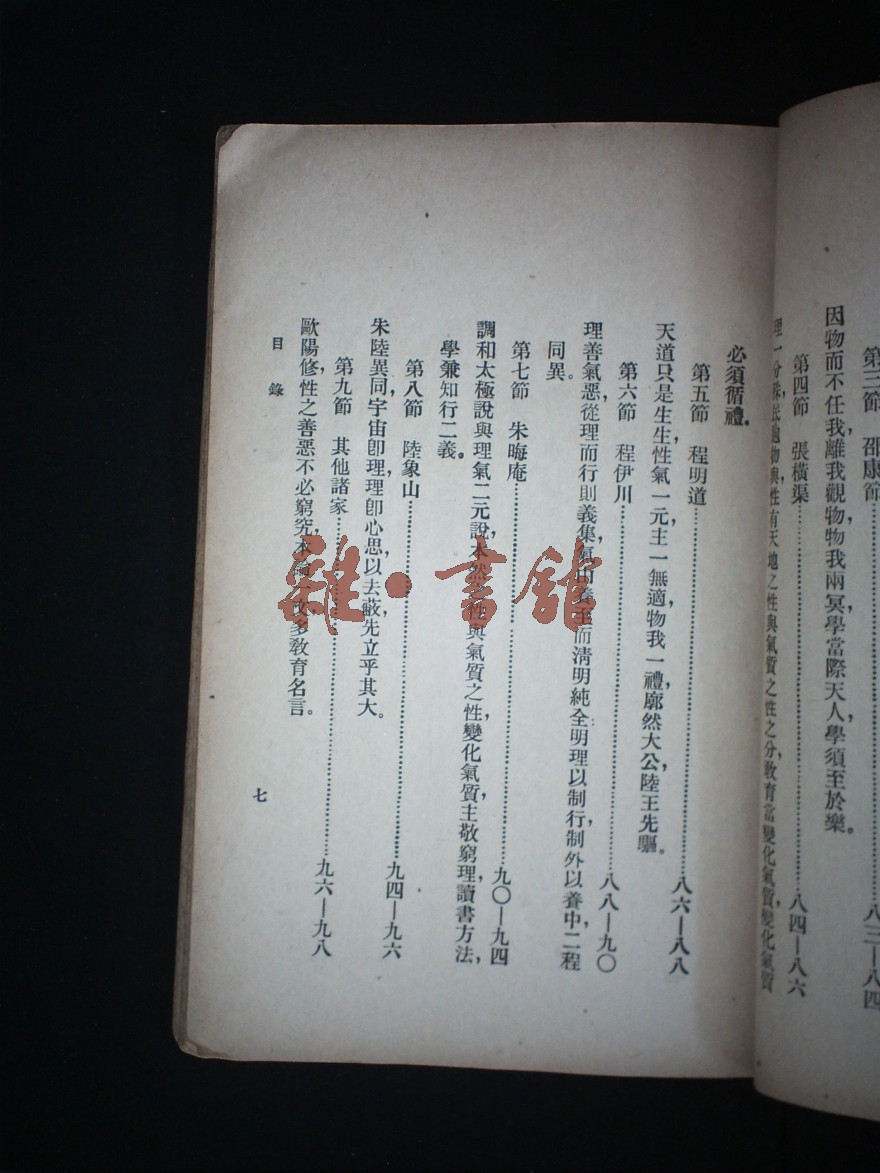 第三節　邵康節………八三—八四
因物而不任我，離我觀物，物我兩冥，學當際天人，學須至於樂。
第四節　張橫渠………八四—八六
理一分殊，民胞物與，性有天地之性與氣質之性之分，教育當變化氣質，變化氣質
必須循禮。
第五節　程明道………八六—八八
天道只是生生，性氣一元，主一無適，物我一禮，廓然大公，陸王先驅。
第六節　程伊川………八八—九〇
理善氣惡，從理而行則義集，氣由養至而清明純全，明理以制行，制外以養中，二程
同異。
第七節　朱晦庵………九〇—九四
調和太極說與理氣二元說，本然之性與氣質之性，變化氣質，主敬窮理，讀書方法，
學兼知行二義。
第八節　陸象山………九四—九六
朱陸異同，宇宙卽理，理卽心，思以去蔽，先立乎其大。
第九節　其他諸家………九六—九八
歐陽修性之善惡不必窮究，本論一文多教育名言。
目錄
七
雜·書館